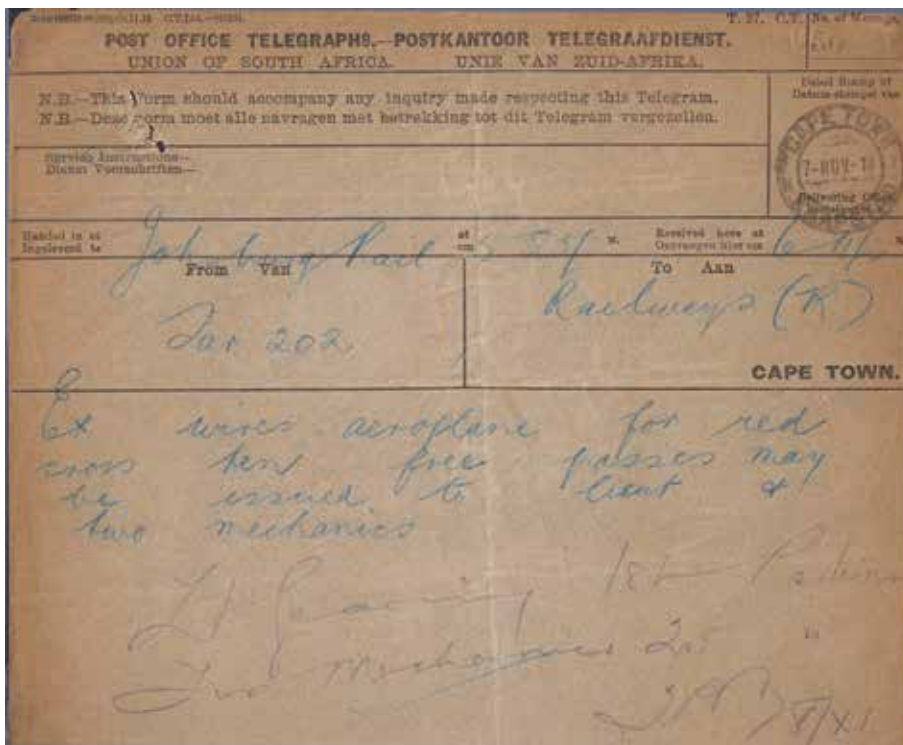 T. 27. C.T. No. of Message,
POST OFFICE TELEGRAPHS.—POSTKANTOOR TELEGRAAFDIENST.
UNION OF SOUTH AFRICA. UNIE VAN ZUID-AFRIKA.
N.B.—This Form should accompany any inquiry made respecting this Telegram.
N.B.—Deze vorm moet alle navragen met betrekking tot dit Telegram vergezellen.
Dated Stamp of
Datum-stempel van
Service Instructions—
Dienst Voorschriften—
CAPE TOWN
7-NOV-1
Delivering Office
Handed in at
Ingeleverd te
Joh-burg Rail
at
om
M.
Received here at
Ontvangen hier om
From Van
To Aan
Tar 202
Railways (R)
CAPE TOWN.
Ex wires aeroplane for red
cross ten free passes may
be issued to lieut &
two mechanics
Lt 1st
Two Mechanics 2nd